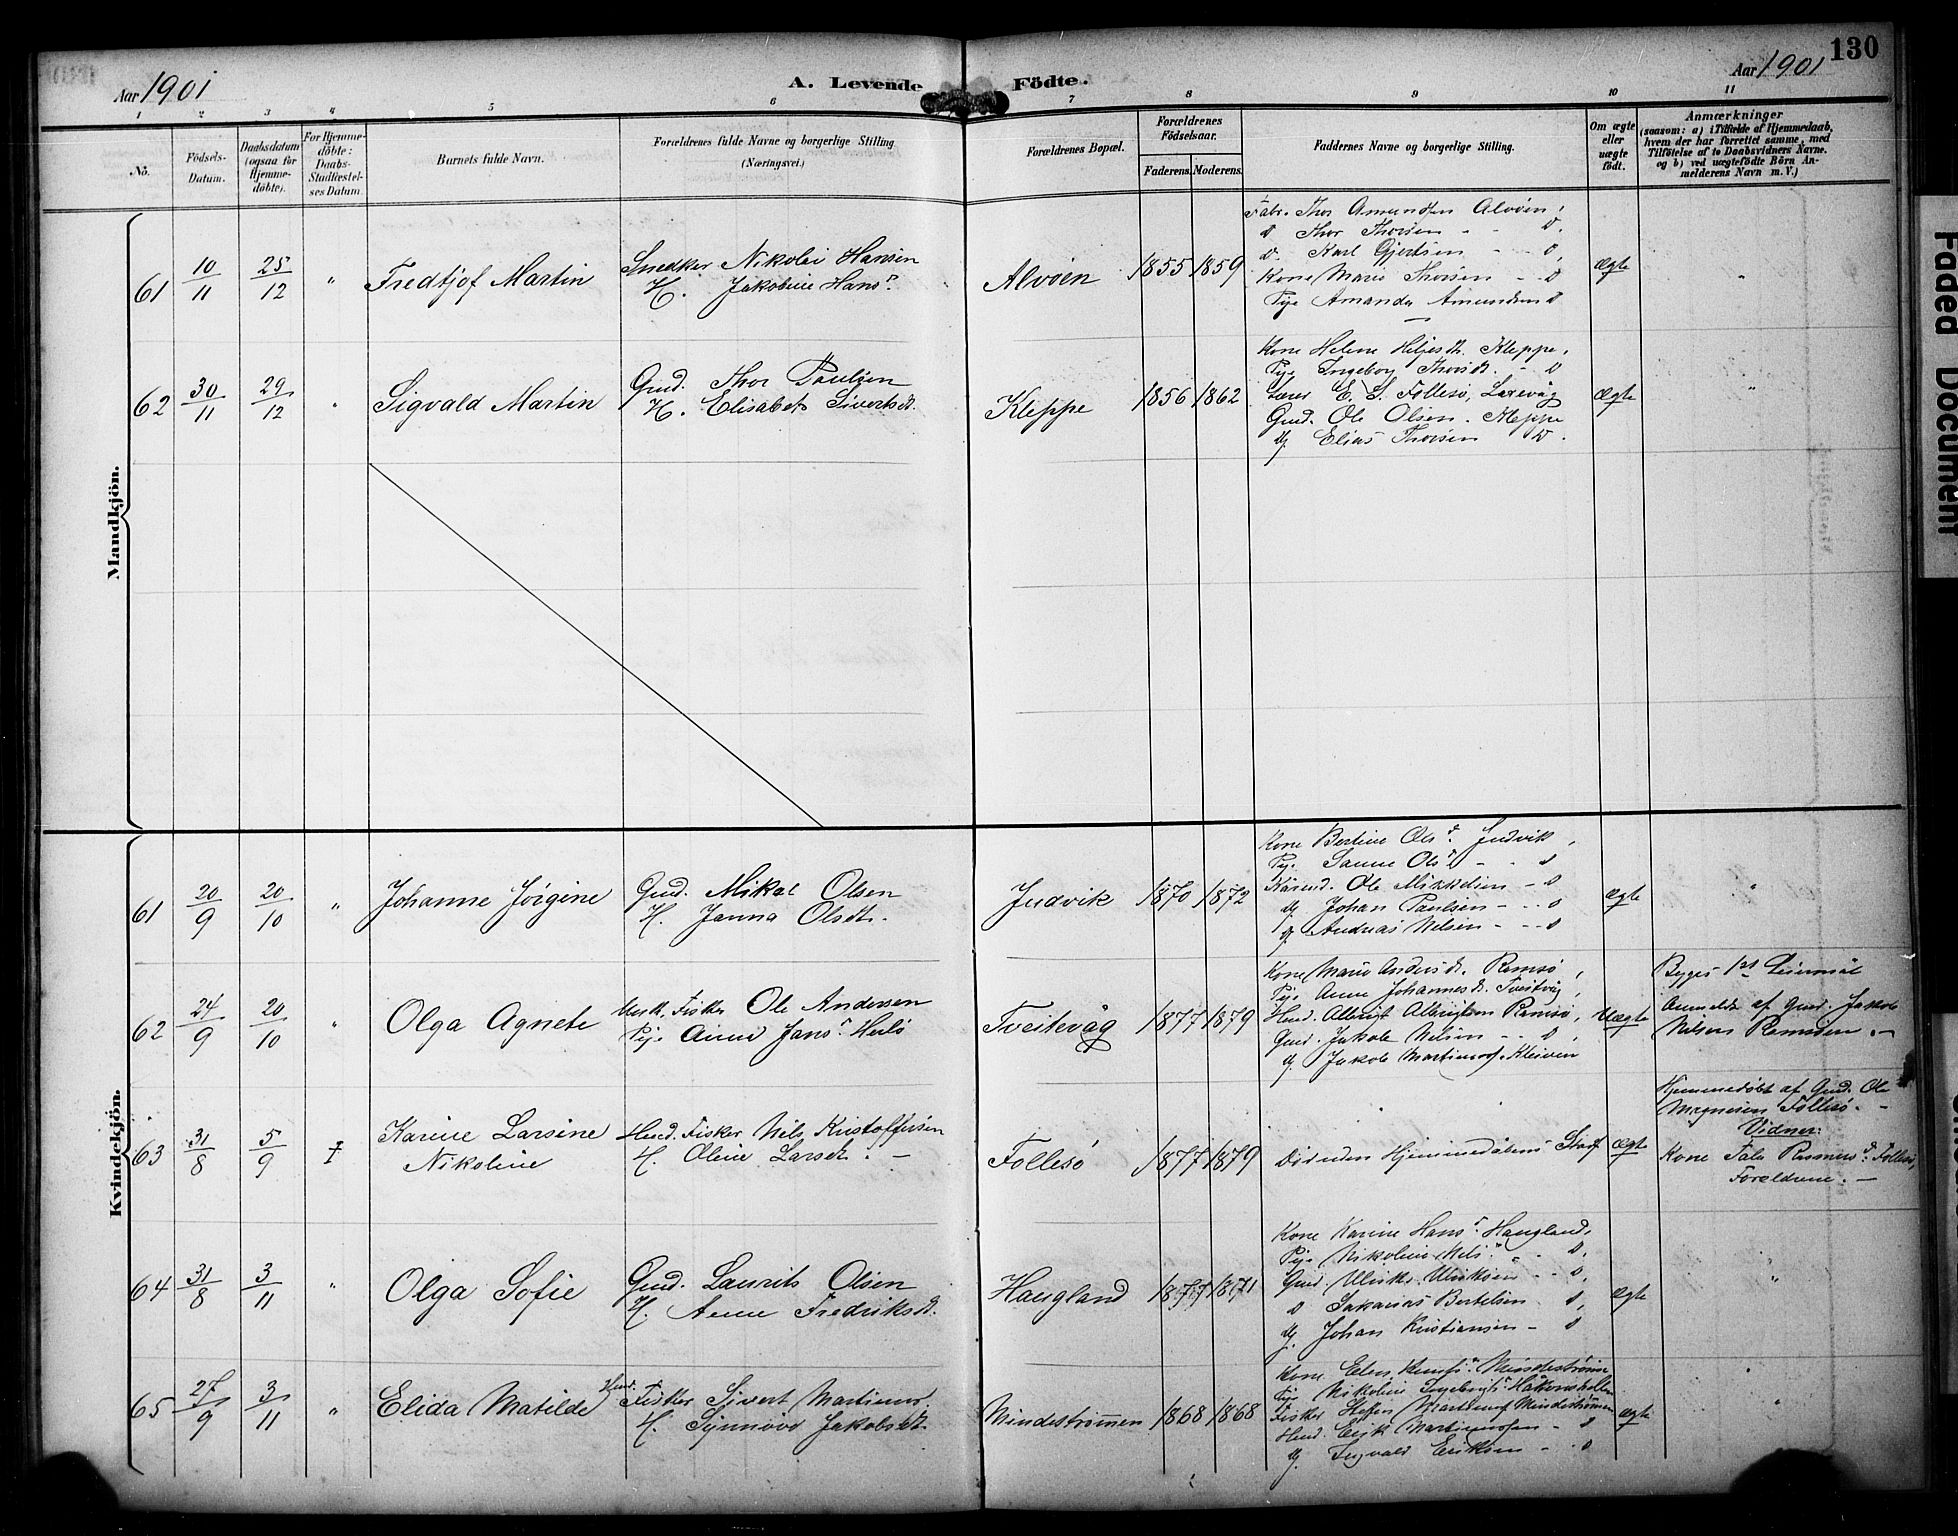 130
Aar 1901
A. Levende Födte.
Aar 1901
1 2 3 4 5 6 7 8 9 10 11
No.
Födsels-Datum.
Daabsdatum (ogsaa for Hjemme-döbte).
For Hjemme-döbte: Daabs-Stadfæstel-ses Datum.
Barnets fulde Navn.
Forældrenes fulde Navne og borgerlige Stilling (Næringsvei.)
Forældrenes Bopæl.
Forældrenes Födselsaar.
Faderens. Moderens.
Faddernes Navne og borgerlige Stilling.
Om ægte eller uægte født.
Anmærkninger
(saasom: a) i Tilfælde af Hjemmedaab,
hvem der har forrettet samme, med
Tilföielse af to Daabsvidners Navne.
og b) ved uægtefödte Börn An-
melderens Navn m. V.)
Mandkjön.
61 10/11 25/12 " Fredtjof Martin
Snedker Nikolai Hansen
H. Jakobine Hansd.
Alvöen 1855 1859
Fabr. Thor Amundsen Alvöen,
D Thor Thorsen - - D.
D. Karl Gjertsen - - D,
Kone Marie Thorsen - - D
Pige Amanda Amundsen D
Ægte "
62 30/11 29/12 " Sigvald Martin
Gmd. Thor Paulsen
H. Elisabet Sivertsdt.
Kleppe 1856 1862
Kone Helene Helgesdt. Kleppe,
Pige Ingeborg Thorsdt. - D
Lærer E. S. Follesö, Laxevåg
Gmd. Ole Olsen. Kleppe
Ug. Elias Thorsen D.
Ægte "
Kvindekjön.
61 20/9 20/10 " Johanne Jörgine
Gmd. Mikal Olsen
H. Janna Olsdt.
Judvik 1870 1872
Kone Bertine Olsd. Judvik,
Pige Sanne Olsd. - - D
Kaarmd. Ole Mikkelsen - D
Ug Johan Paulsen - - D
Ug. Andreas Nilsen - - D
Ægte "
62 24/9 20/10 " Olga Agnete
Unrk. Fisker Ole Andersen
Pige Anna Jansd. Herlö
Tveitevåg 1877 1879
Kone Marie Andersdt. Ramsö,
Pige Anne Johannesdt. Tveitvåg,
Husmd. Albrigt Albrigtsen Ramsö,
Gmd. Jakob Nilsen - - D,
Ug. Jakob Martinuss. Kleiven
Uægte
Begges 1ste Leiermål
Anmeldt af Gmd. Jakob
Nilsen Ramsöen. -
63 31/8 5/9 ‡ Karine Larsine
Nikoline
Husmd. Fisker Nils Kristoffersen
H. Oline Larsdt. -
Follesö 1877 1879
Död uden Hjemmedåbens Stadf
Ægte
Hjemmedöbt af Gmd. Ole
Magnesen Follesö. -
Vidner:
Kone Tala Rasmusd. Follesö,
Forældrene. -
64 31/8 3/11 " Olga Sofie
Gmd. Laurits Olsen
H. Anne Fredriksdt.
Haugland 1877 1871
Kone Karine Hansd. Haugland,
Pige Nikoline Nilsd. - D.
Gmd. Ulrik Ulriksen - - D,
D Sakarias Bertelsen D,
Ug. Johan Kristiansen - D
Ægte "
65 27/9 3/11 " Elida Matilde
Husmd. Fisker Sivert Martinus.
H. Synnöve Jakobsdt.
Mindeströmmen 1868 1868
Kone Elen Knutsd. Mindeströmme
Pige Nikoline Ingebrigtsd. Håkonshellen
Fisker Steffen Martinus. Mindeströmmen
Husmd. Erik Martinussen - D
Ug. Ingvald Eriksen - - D
Ægte "
Faded Document